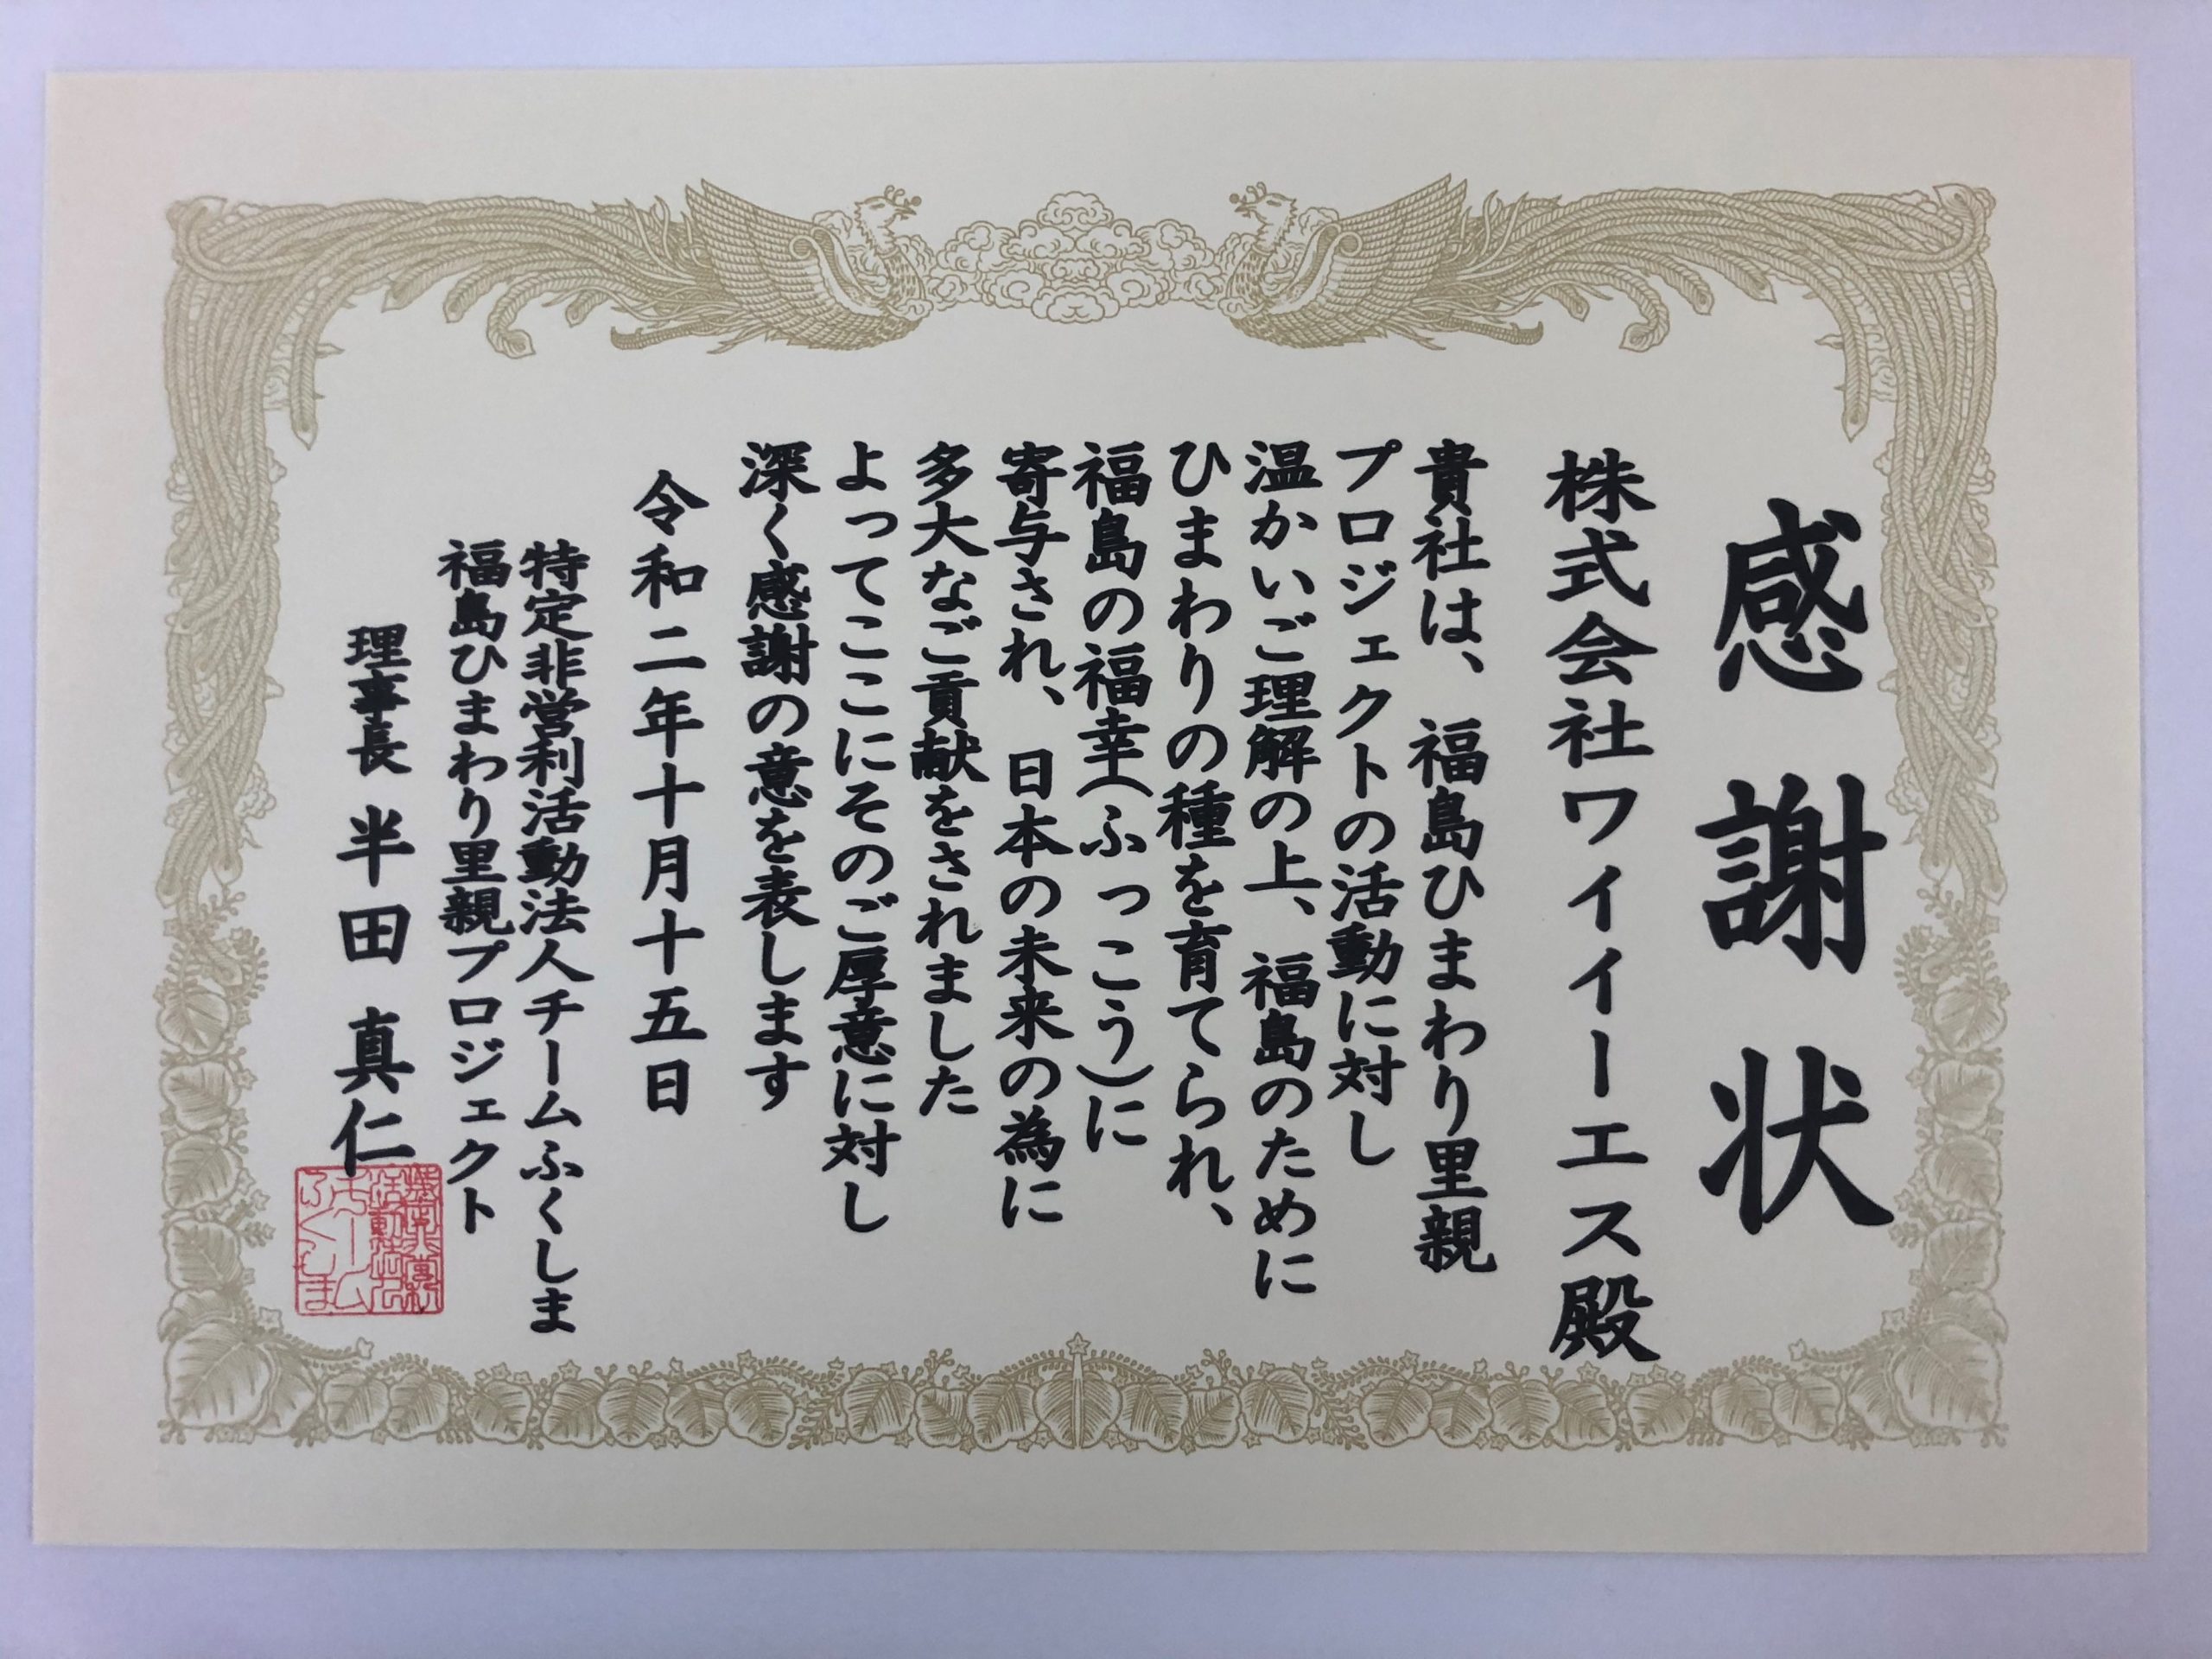 感謝状
株式会社ワイイーエス殿
貴社は、福島ひまわり里親
プロジェクトの活動に対し
温かいご理解の上、福島のために
ひまわりの種を育てられ、
福島の福幸(ふっこう)に
寄与され、日本の未来の為に
多大なご貢献をされました
よってここにそのご厚意に対し
深く感謝の意を表します
令和二年十月十五日
特定非営利活動法人チームふくしま
福島ひまわり里親プロジェクト
理事長 半田 真仁
特定非営利
活動法人
チーム
ふくしま